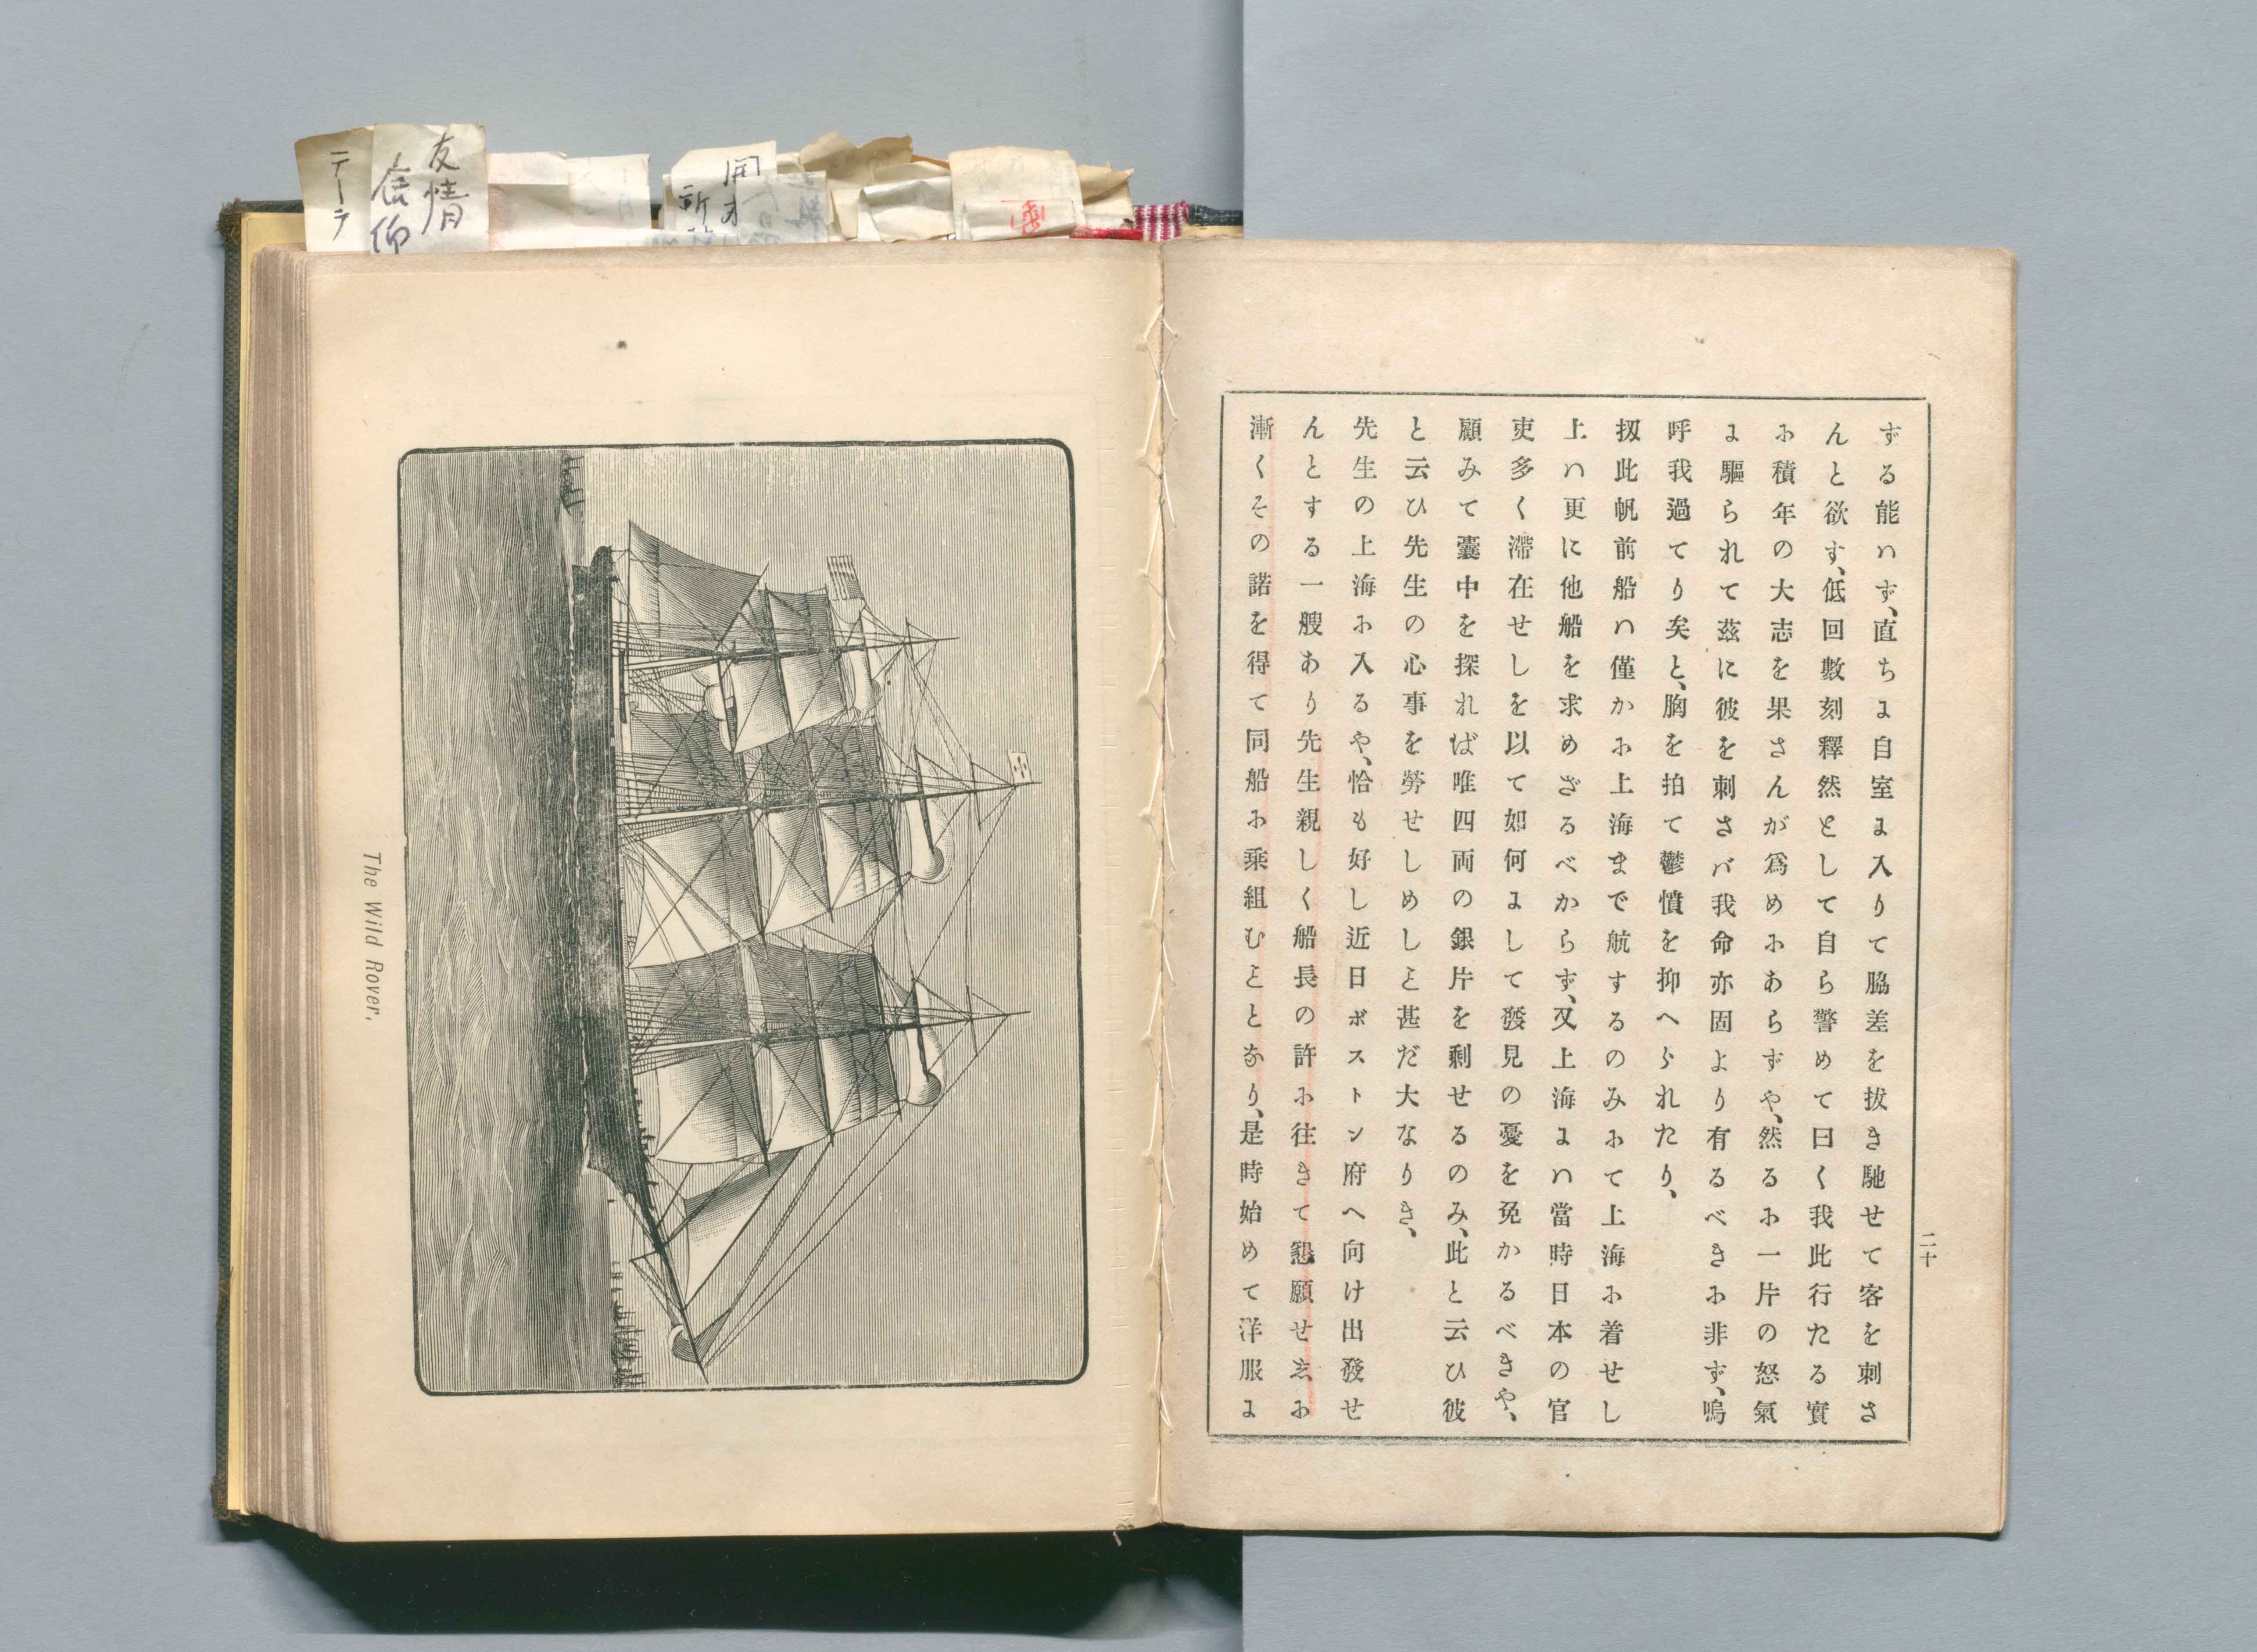 ずる能ハず、直ちに自室に入りて脇差を拔き馳せて客を刺さ
んと欲す、低回數刻釋然として自ら警めて曰く我此行たる實
に積年の大志を果さんが爲めにあらずや、然るに一片の怒氣
に驅られて茲に彼を刺さバ我命亦固より有るべきに非ず、嗚
呼我過てり矣と、胸を拍て鬱憤を抑へられたり、
扨此帆前船ハ僅かに上海まで航するのみにて上海に着せし
上ハ更に他船を求めざるべからず、又上海にハ當時日本の官
吏多く滯在せしを以て如何にして發見の憂を免かるべきや、
顧みて囊中を探れば唯四両の銀片を剩せるのみ、此と云ひ彼
と云ひ先生の心事を勞せしめしこと甚だ大なりき、
先生の上海に入るや、恰も好し近日ボストン府へ向け出發せ
んとする一艘あり先生親しく船長の許に往きて懇願せゑに
漸くその諾を得て同船に乘組むこととなり、是時始めて洋服に
二十
The Wild Rover.
友情
信仰
テーラ